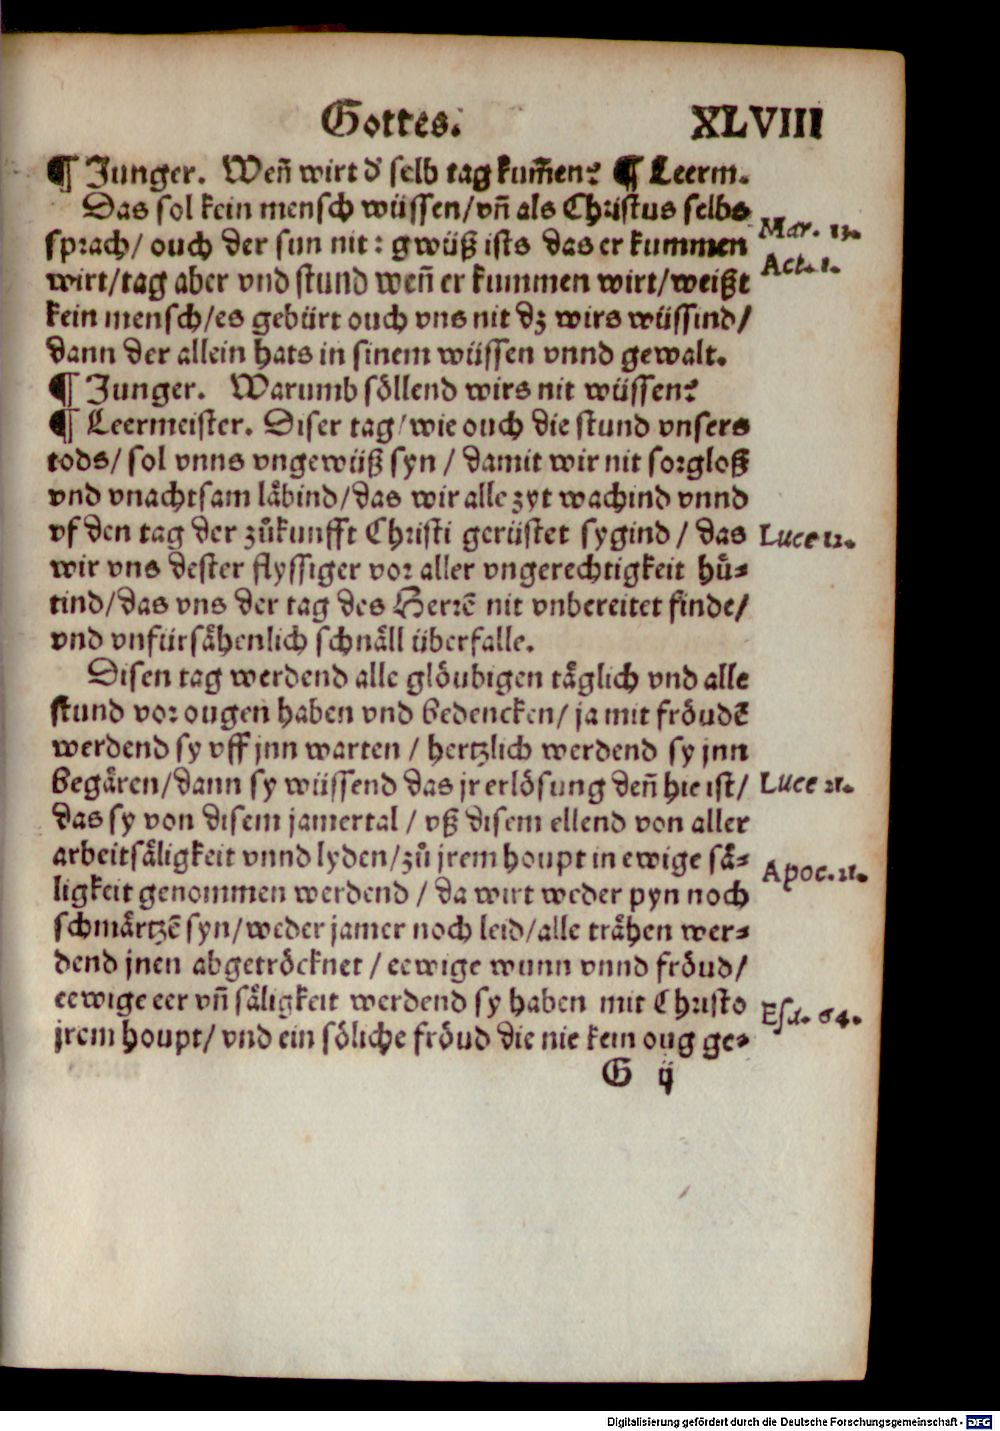 Gottes. XLVIII
¶ Junger. Wen̄ wirt d' selb tag kum̄en? ¶ Leerm.
Das sol kein mensch wüssen/vn̄ als Christus selbs
sprach/ ouch der sun nit: gwüß ists das er kummen
Mar. 13.
wirt/tag aber vnd stund wen̄ er kummen wirt/weißt
Act. 1.
kein mensch/es gebürt ouch vns nit dz wirs wüssind/
dann der allein hats in sinem wüssen vnnd gewalt.
¶ Junger. Warumb söllend wirs nit wüssen?
¶ Leermeister. Diser tag/wie ouch die stund vnsers
tods/ sol vnns vngewüß syn / damit wir nit sorgloß
vnd vnachtsam läbind/das wir alle zyt wachind vnnd
vf den tag der zůkunfft Christi gerüstet sygind / das
Luce 12.
wir vns dester flyssiger vor aller vngerechtigkeit hů-
tind/das vns der tag des Herrē nit vnbereitet finde/
vnd vnfürsähenlich schnäll überfalle.
Disen tag werdend alle glöubigen täglich vnd alle
stund vor ougen haben vnd bedencken/ ja mit fröudē
werdend sy vff jnn warten / hertzlich werdend sy jnn
begären/dann sy wüssend das jr erlösung den̄ hie ist/
Luce 21.
das sy von disem jamertal / vß disem ellend von aller
arbeitsäligkeit vnnd lyden/zů jrem houpt in ewige sä-
Apoc. 21.
ligkeit genommen werdend / da wirt weder pyn noch
schmärtzē syn/weder jamer noch leid/alle trähen wer-
dend jnen abgetröcknet / eewige wunn vnnd fröud/
eewige eer vn̄ säligkeit werdend sy haben mit Christo
Esa. 64.
jrem houpt/ vnd ein söliche fröud die nie kein oug ge-
G ij
Digitalisierung gefördert durch die Deutsche Forschungsgemeinschaft - DFG